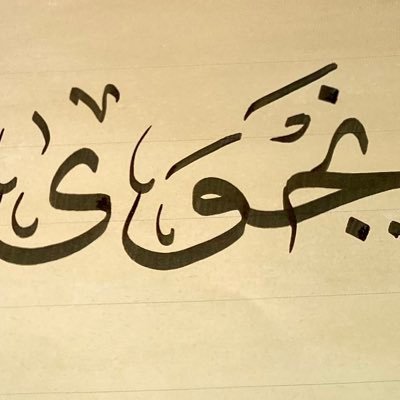 نَجْوَى